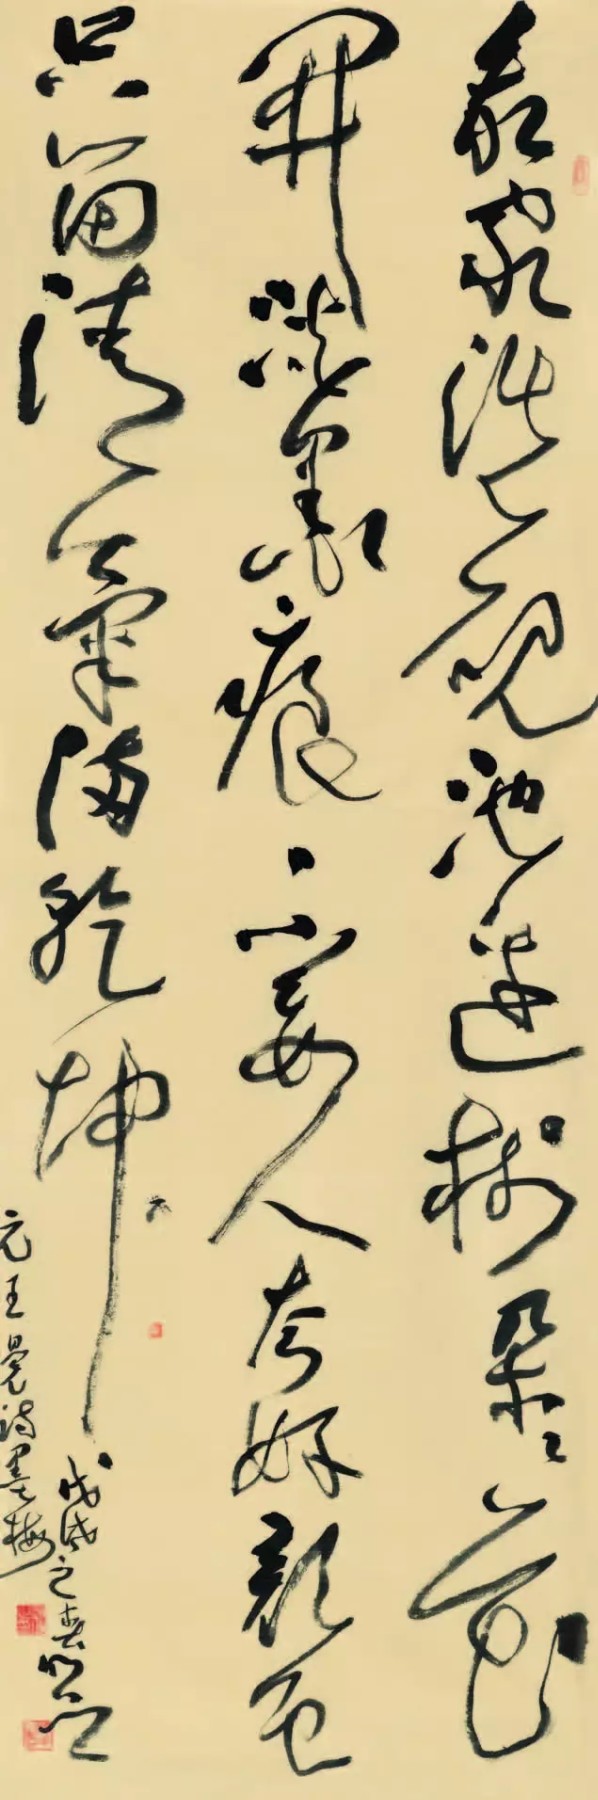 我家洗硯池邊樹朵々花
開淡墨痕不要人夸好顏色
只留清氣滿乾坤
元王冕詩墨梅
戊戌之春